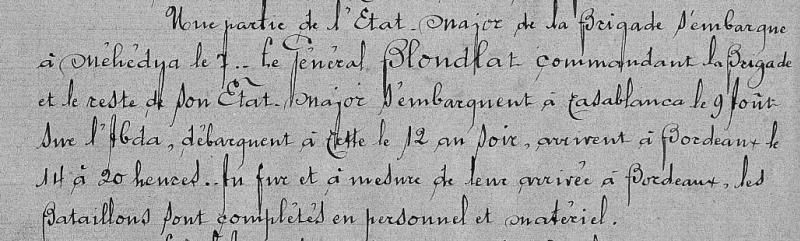 Une partie de l'Etat-Major de la Brigade s'embarque
à Méhédya le 7.. Le Général Blondlat commandant la Brigade
et le reste de son Etat-Major s'embarquent à Casablanca le 9 Août
sur l'Ibda, débarquent à Cette le 12 au soir, arrivent à Bordeaux le
14 à 20 heures.. Au fur et à mesure de leur arrivée à Bordeaux, les
Bataillons sont complétés en personnel et matériel.